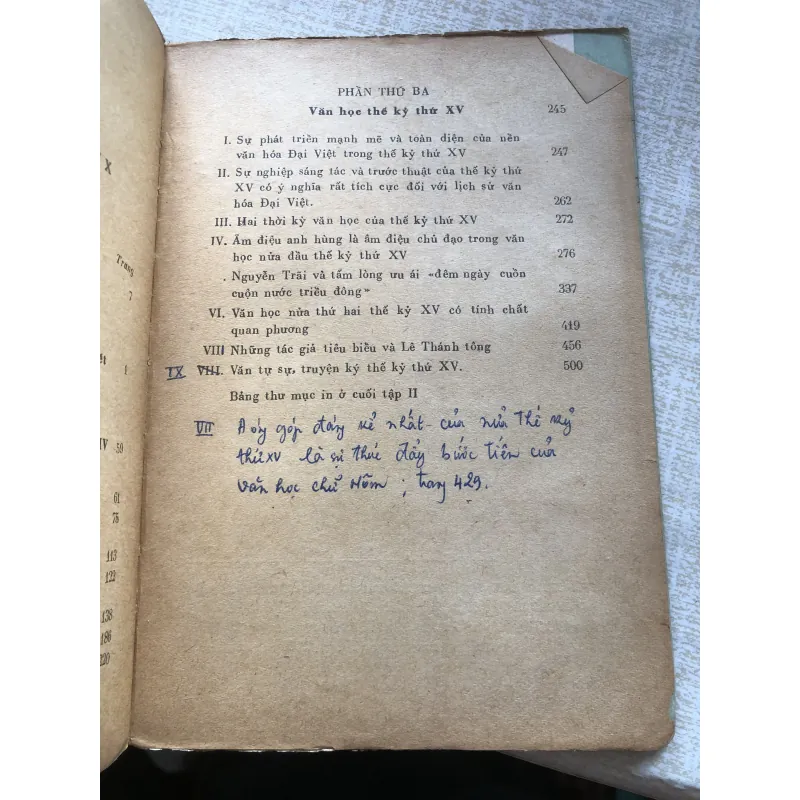 X
Trang
7
1
IV 50
61
78
113
122
138
186
220
PHẦN THỨ BA
Văn học thế kỷ thứ XV 245
I. Sự phát triển mạnh mẽ và toàn diện của nền
văn hóa Đại Việt trong thế kỷ thứ XV 247
II. Sự nghiệp sáng tác và trước thuật của thế kỷ thứ
XV có ý nghĩa rất tích cực đối với lịch sử văn
hóa Đại Việt. 262
III. Hai thời kỳ văn học của thế kỷ thứ XV 272
IV. Âm điệu anh hùng là âm điệu chủ đạo trong văn
học nửa đầu thế kỷ thứ XV 276
. Nguyễn Trãi và tấm lòng ưu ái «đêm ngày cuồn
cuộn nước triều đông» 337
VI. Văn học nửa thứ hai thế kỷ XV có tính chất
quan phương 419
VIII Những tác giả tiêu biểu và Lê Thánh tông 456
IX VIII. Văn tự sự, truyện ký thế kỷ thứ XV. 500
Bảng thư mục in ở cuối tập II
VII Đóng góp đáng kể nhất của nửa thế kỷ
thứ XV là sự thúc đẩy bước tiến của
văn học chữ Nôm ; trang 429.